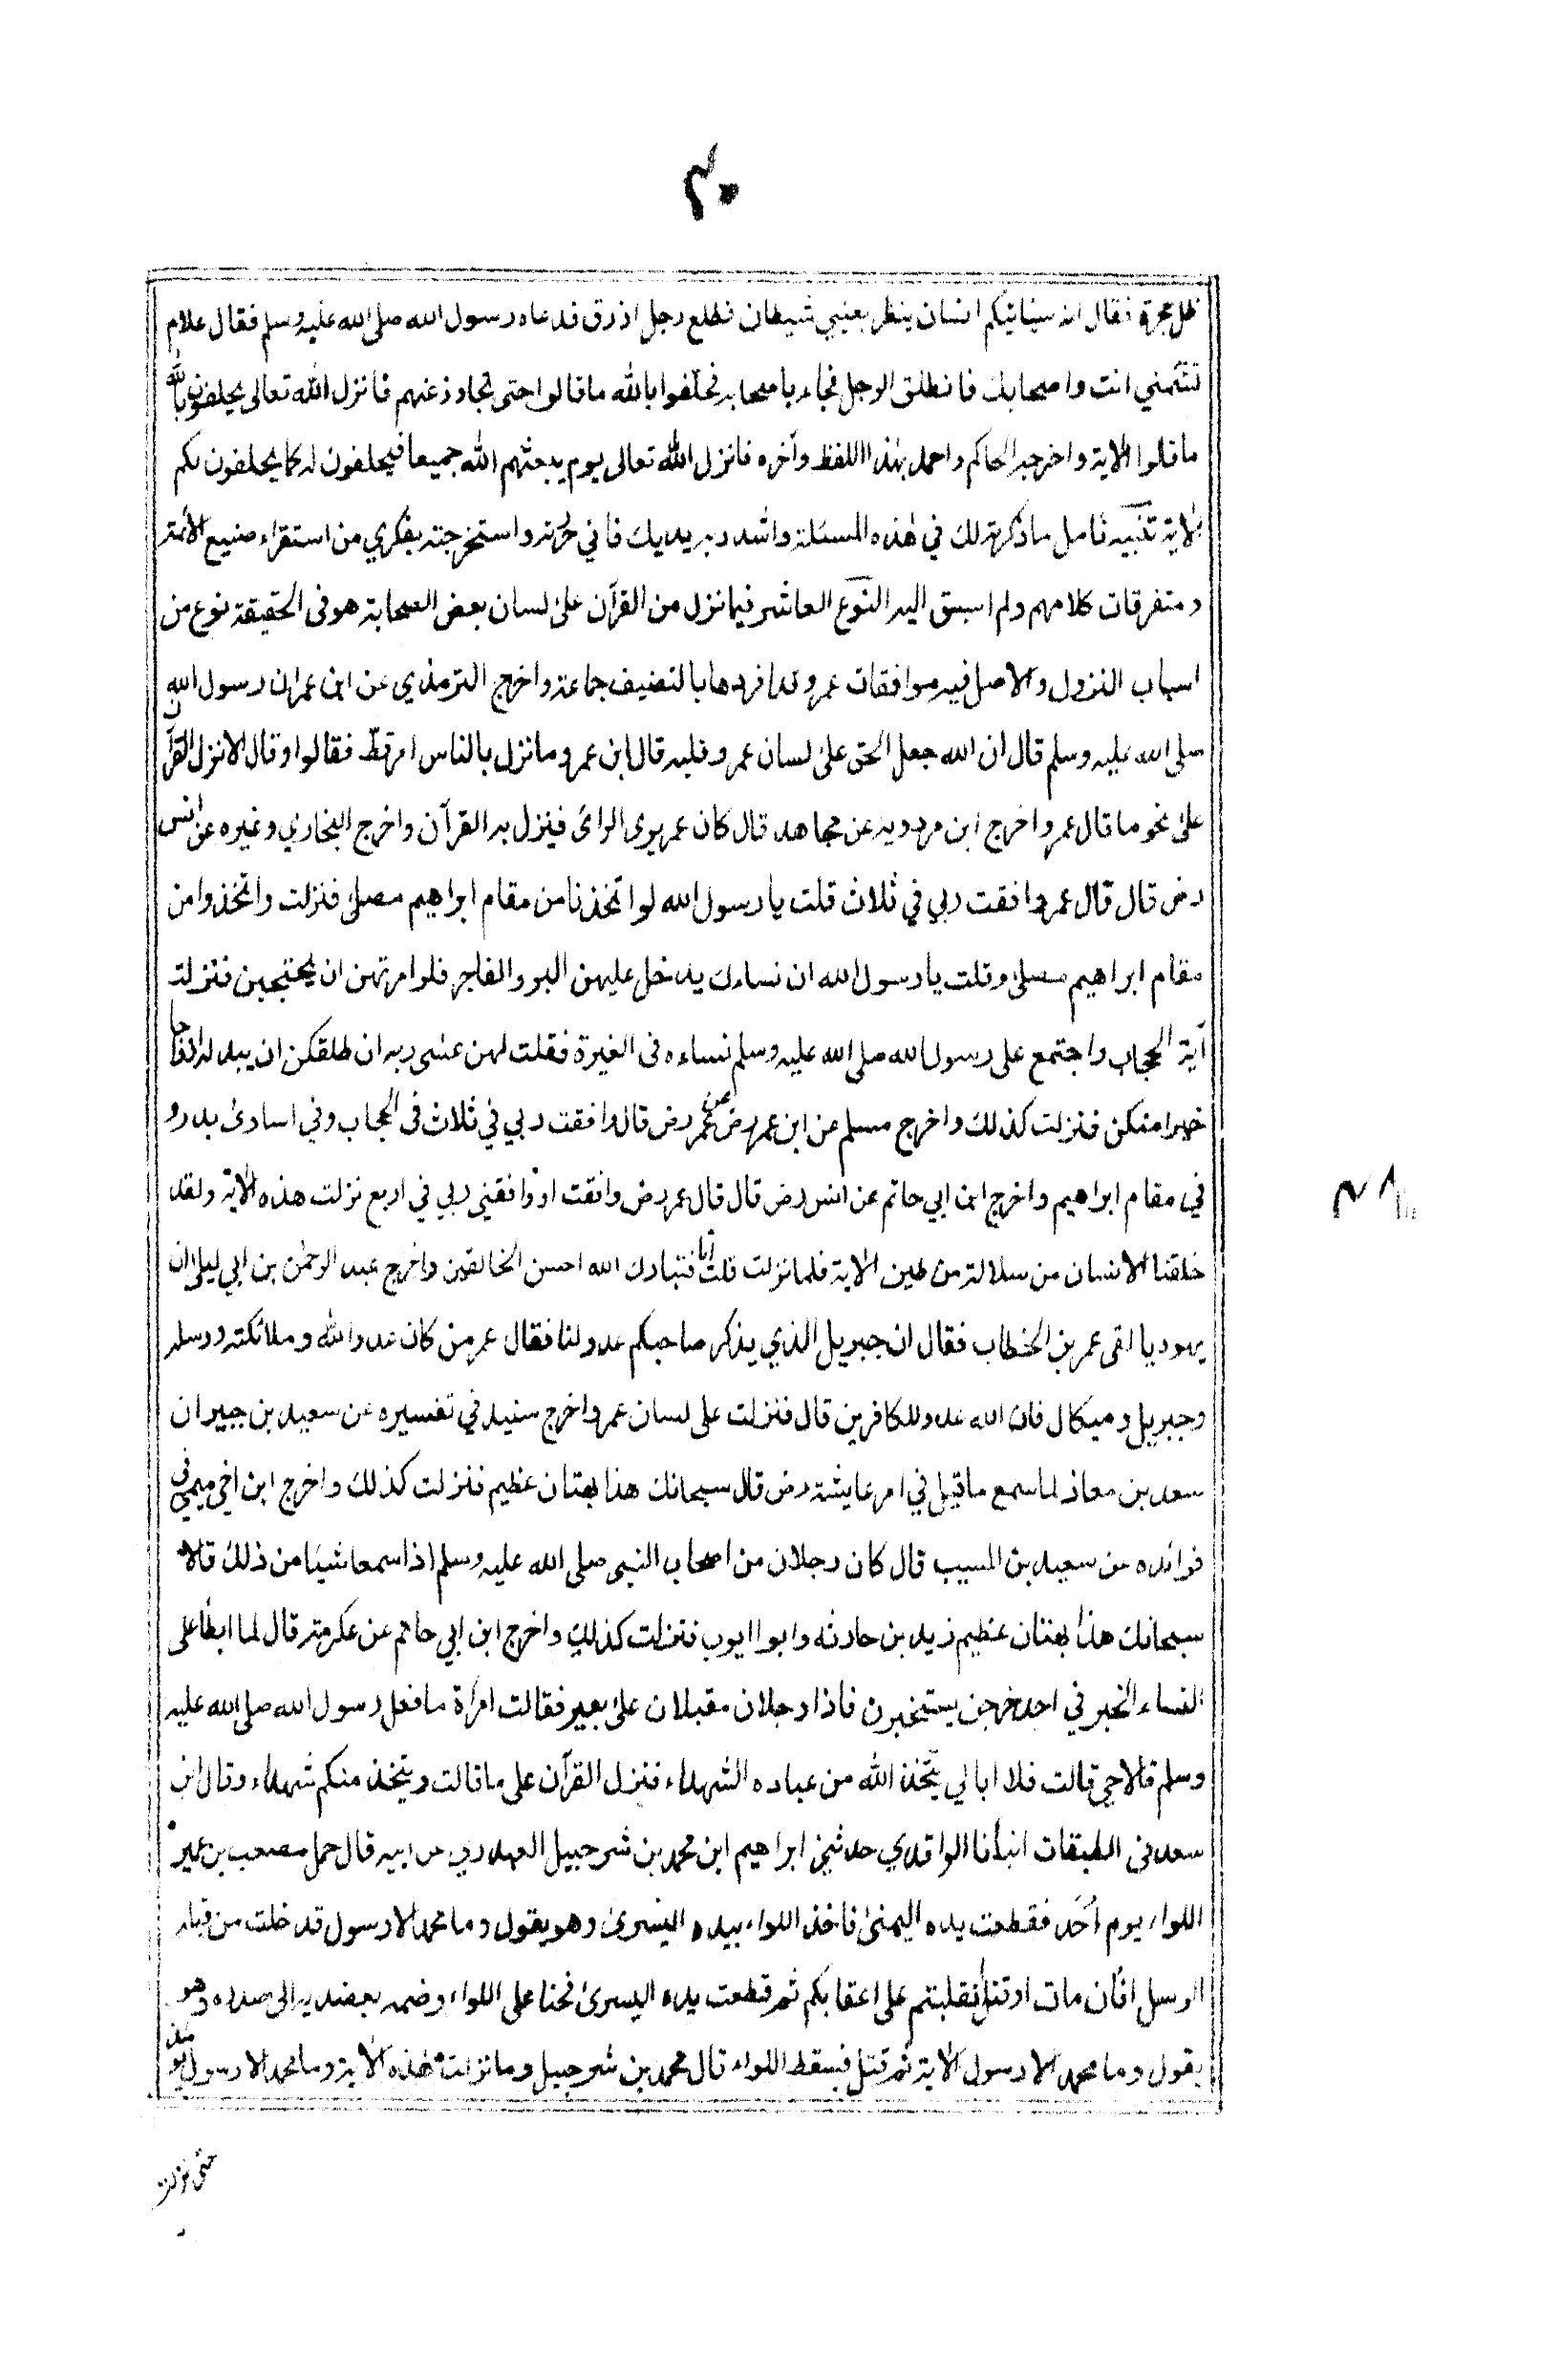 ٢٠
ظل حجرة فقال انه سيأتيكم انسان ينظر بعيني شيطان فطلع رجل ازرق فدعاه رسول الله صلى الله عليه وسلم فقال علام
تشتمني انت واصحابك فانطلق الرجل فجاء باصحابه فحلفوا بالله ما قالوا حتى تجاوز عنهم فانزل الله تعالى يحلفون بالله
ما قالوا الاية واخرجه الحاكم واحمد بهذا اللفظ وآخره فانزل الله تعالى يوم يبعثهم الله جميعا فيحلفون له كما يحلفون لكم
الاية تنبيه تامل ما ذكرته لك في هذه المسئلة واشدد به يديك فاني حررته واستخرجته بفكري من استقراء صنيع الائمة
ومتفرقات كلامهم ولم اسبق اليه النوع العاشر فيما نزل من القرآن على لسان بعض الصحابة هو فى الحقيقة نوع من
اسباب النزول والاصل فيه موافقات عمر وقد افردها بالتصنيف جماعة واخرج الترمذي عن ابن عمر ان رسول الله
صلى الله عليه وسلم قال ان الله جعل الحق على لسان عمر وقلبه قال ابن عمر وما نزل بالناس امر قط فقالوا وقال الا نزل القرآن
على نحو ما قال عمر واخرج ابن مردويه عن مجاهد قال كان عمر يرى الرائ فينزل به القرآن واخرج البخاري وغيره عن انس
رض قال قال عمر وافقت ربي في ثلاث قلت يا رسول الله لو اتخذنا من مقام ابراهيم مصلى فنزلت واتخذوا من
مقام ابراهيم مصلى وقلت يا رسول الله ان نساءك يدخل عليهن البر والفاجر فلو امرتهن ان يحتجبن فنزلت
آية الحجاب واجتمع على رسول الله صلى الله عليه وسلم نساءه فى الغيرة فقلت لهن عسى ربه ان طلقكن ان يبدله ازواجا
خيرا منكن فنزلت كذلك واخرج مسلم عن ابن عمر رض عن عمر رض قال وافقت ربي في ثلاث فى الحجاب وفي اسارى بدر و
في مقام ابراهيم واخرج ابن ابي حاتم عن انس رض قال قال عمر رض وافقت او وافقني ربي في اربع نزلت هذه الاية ولقد
خلقنا الانسان من سلالة من طين الاية فلما نزلت قلت انا فتبارك الله احسن الخالقين واخرج عبد الرحمن بن ابي ليلى ان
يهوديا لقى عمر بن الخطاب فقال ان جبريل الذي يذكر صاحبكم عدو لنا فقال عمر من كان عدوا لله وملائكته ورسله
وجبريل وميكال فان الله عدو للكافرين قال فنزلت على لسان عمر واخرج سنيد في تفسيره عن سعيد بن جبير ان
سعد بن معاذ لما سمع ما قيل في امر عايشة رض قال سبحانك هذا بهتان عظيم فنزلت كذلك واخرج ابن اخي ميمي في
فوائده عن سعيد بن المسيب قال كان رجلان من اصحاب النبي صلى الله عليه وسلم اذا سمعا شيئا من ذلك قالا
سبحانك هذا بهتان عظيم زيد بن حارثه وابو ايوب فنزلت كذلك واخرج ابن ابي حاتم عن عكرمة قال لما ابطأ على
النساء الخبر في احد خرجن يستخبرن فاذا رجلان مقبلان على بعير فقالت امرأة ما فعل رسول الله صلى الله عليه
وسلم قالا حي قالت فلا ابالي يتخذ الله من عباده الشهداء فنزل القرآن على ما قالت ويتخذ منكم شهداء وقال ابن
سعد فى الطبقات انبأنا الواقدي حدثني ابراهيم ابن محمد بن شرحبيل العبدري عن ابيه قال حمل مصعب بن عمير
اللواء يوم أحد فقطعت يده اليمنى فاخذ اللواء بيده اليسرى وهو يقول وما محمد الا رسول قد خلت من قبله
الرسل افأن مات او قتل انقلبتم على اعقابكم ثم قطعت يده اليسرى فحنا على اللواء وضمه بعضديه الى صدره وهو
يقول وما محمد الا رسول الاية ثم قتل فسقط اللواء قال محمد بن شرحبيل وما نزلت هذه الاية وما محمد الا رسول يومئذ
حتى نزلت